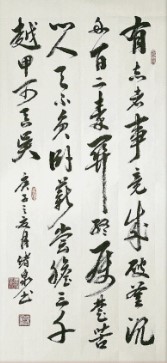 有志者事竟成破釜沉
舟百二秦關終屬楚苦
心人天不負卧薪嘗膽三千
越甲可吞吳
庚子之夏月